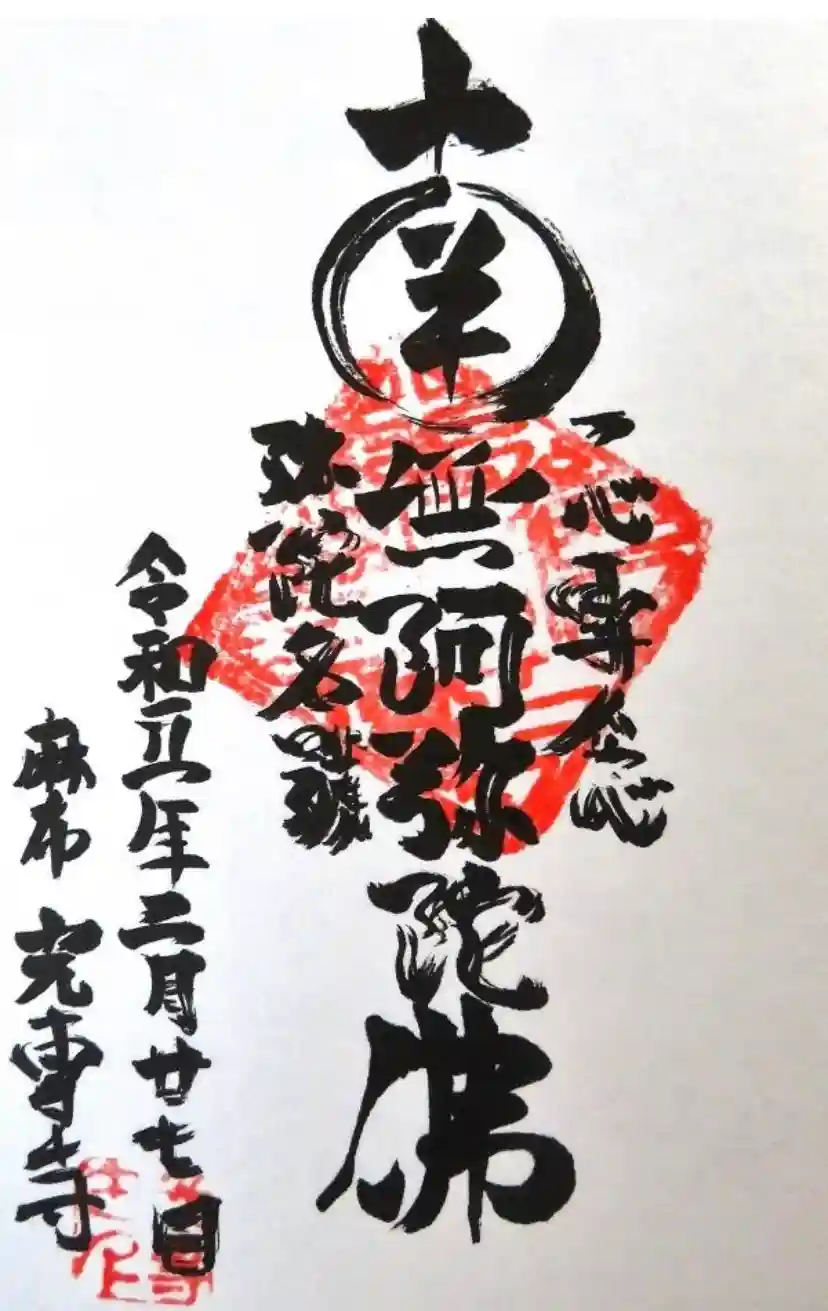 一心専念
南無阿弥陀佛
弥陀名號
令和五年二月廿七日
麻布 光専寺